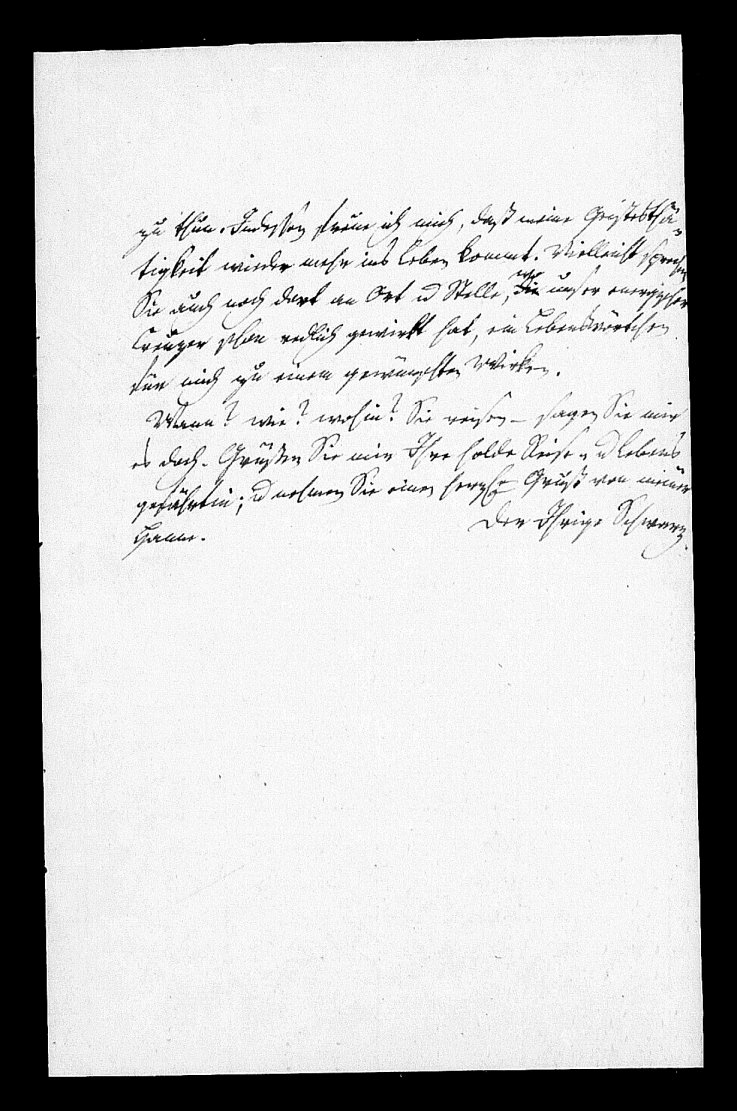 zu thun. Indessen freue ich mich, daß meine Geistesthä-
tigkeit wieder mehr ins Leben kommt. Vielleicht sprechen
Sie auch noch dort an Ort u Stelle, wo unser energischer
Creuzer schon redlich gewirkt hat, ein Lebenswörtchen
für mich zu einem gewünschten Wirken.
Wann? wie? wohin? Sie reisen – sagen Sie mir
es doch. Grüßen Sie mir Ihre holde Reise- u Lebens
gefährtin; u nehmen Sie einen herzl. Gruß von meiner
Hanne.
Der Ihrige Schwarz.